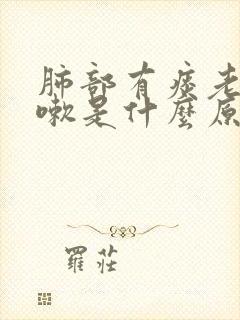 肺部有痰老
嗽是什麼原
羅莊